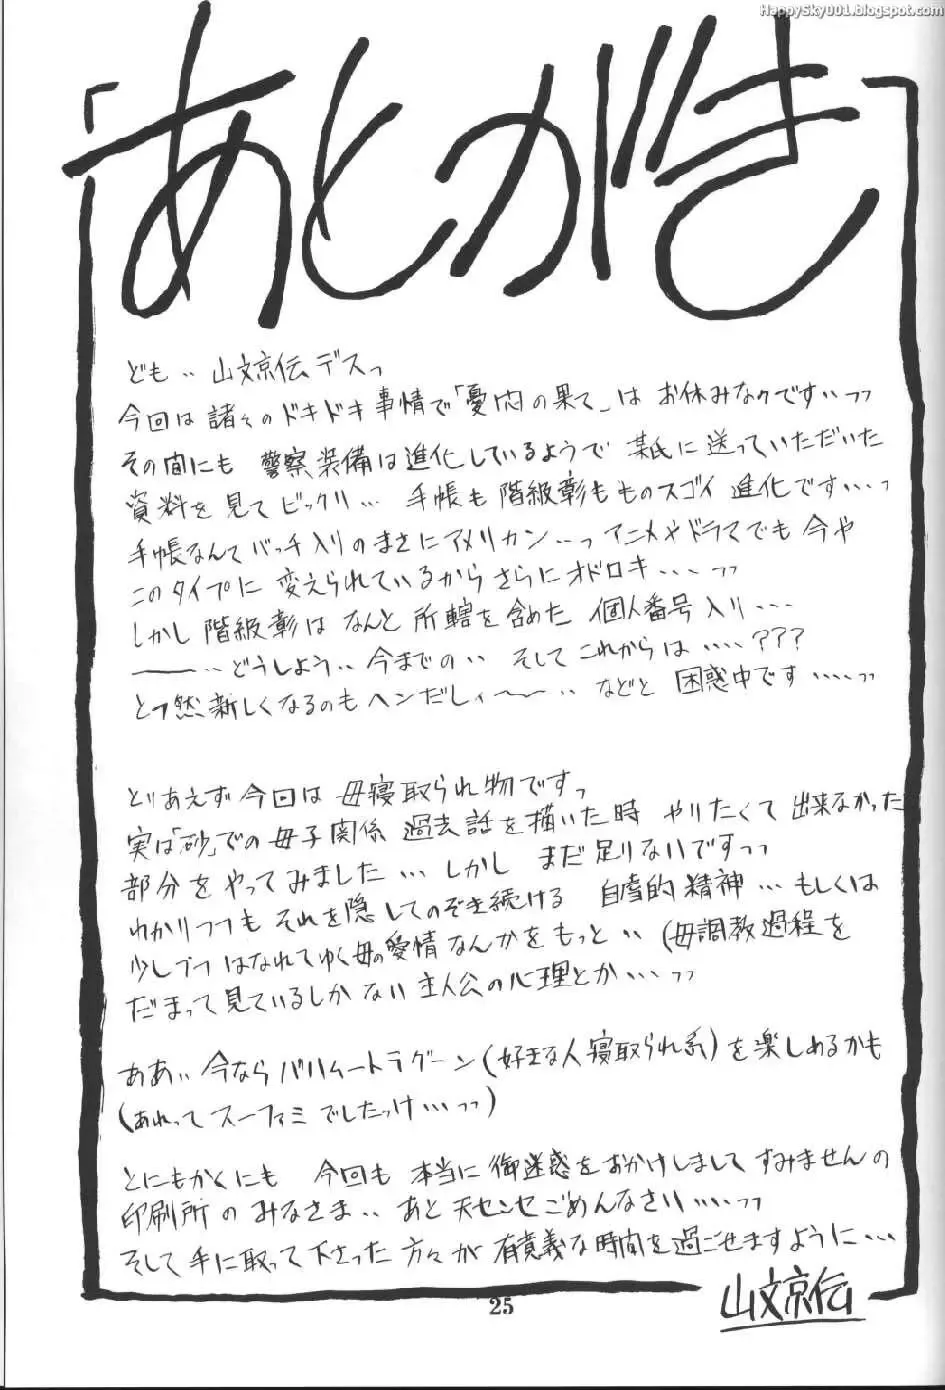 HappySky001.blogspot.com
あとがき
ども‥山文京伝デスっ
今回は諸々のドキドキ事情で「憂悶の果て」はお休みなのですいっっ
その間にも 警察装備は進化しているようで 某氏に送っていただいた
資料を見てビックリ… 手帳も階級彰もものスゴイ進化です…っ
手帳なんてバッチ入りのまさにアメリカン…っ アニメやドラマでも今や
このタイプに変えられているからさらにオドロキ…っっ
しかし階級彰はなんと所轄を含めた 個人番号入り…
―――‥どうしよう‥今までの‥ そしてこれからは……???
とつ然新しくなるのもヘンだしィ〜〜‥ などと 困惑中です……っっ
とりあえず今回は 母寝取られ物ですっ
実は「砂」での母子関係 過去話を描いた時 やりたくて出来なかった
部分をやってみました…しかし まだ足りないですっっ
わかりつつもそれを隠してのぞき続ける 自虐的精神…もしくは
少しづつはなれてゆく母の愛情なんかをもっと‥ (母調教過程を
だまって見ているしかない主人公の心理とか…っっ
ああ‥今ならバハムートラグーン(好きな人寝取られ系)を楽しめるかも
(あれってスーファミでしたっけ…っっ)
とにもかくにも 今回も 本当に御迷惑をおかけしましてすみませんの
印刷所のみなさま‥あと天センセごめんなさい……っっ
そして手に取って下さった方々が有意義な時間を過ごせますように…
山文京伝
25